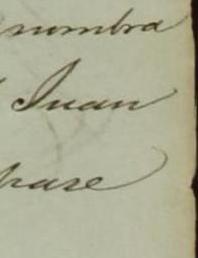 nombra
Juan
pase